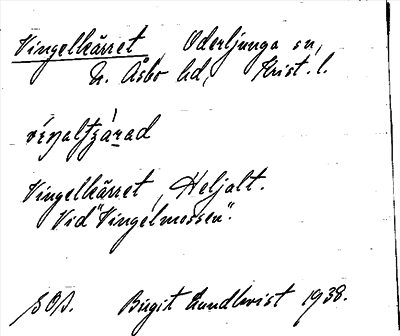 Vingelkärret, Oderljunga sn,
N. Åsbo hd, Krist. l.
Vingelkärret, Heljalt.
Vid "Vingelmossen".
Birgit Lundkvist 1938.